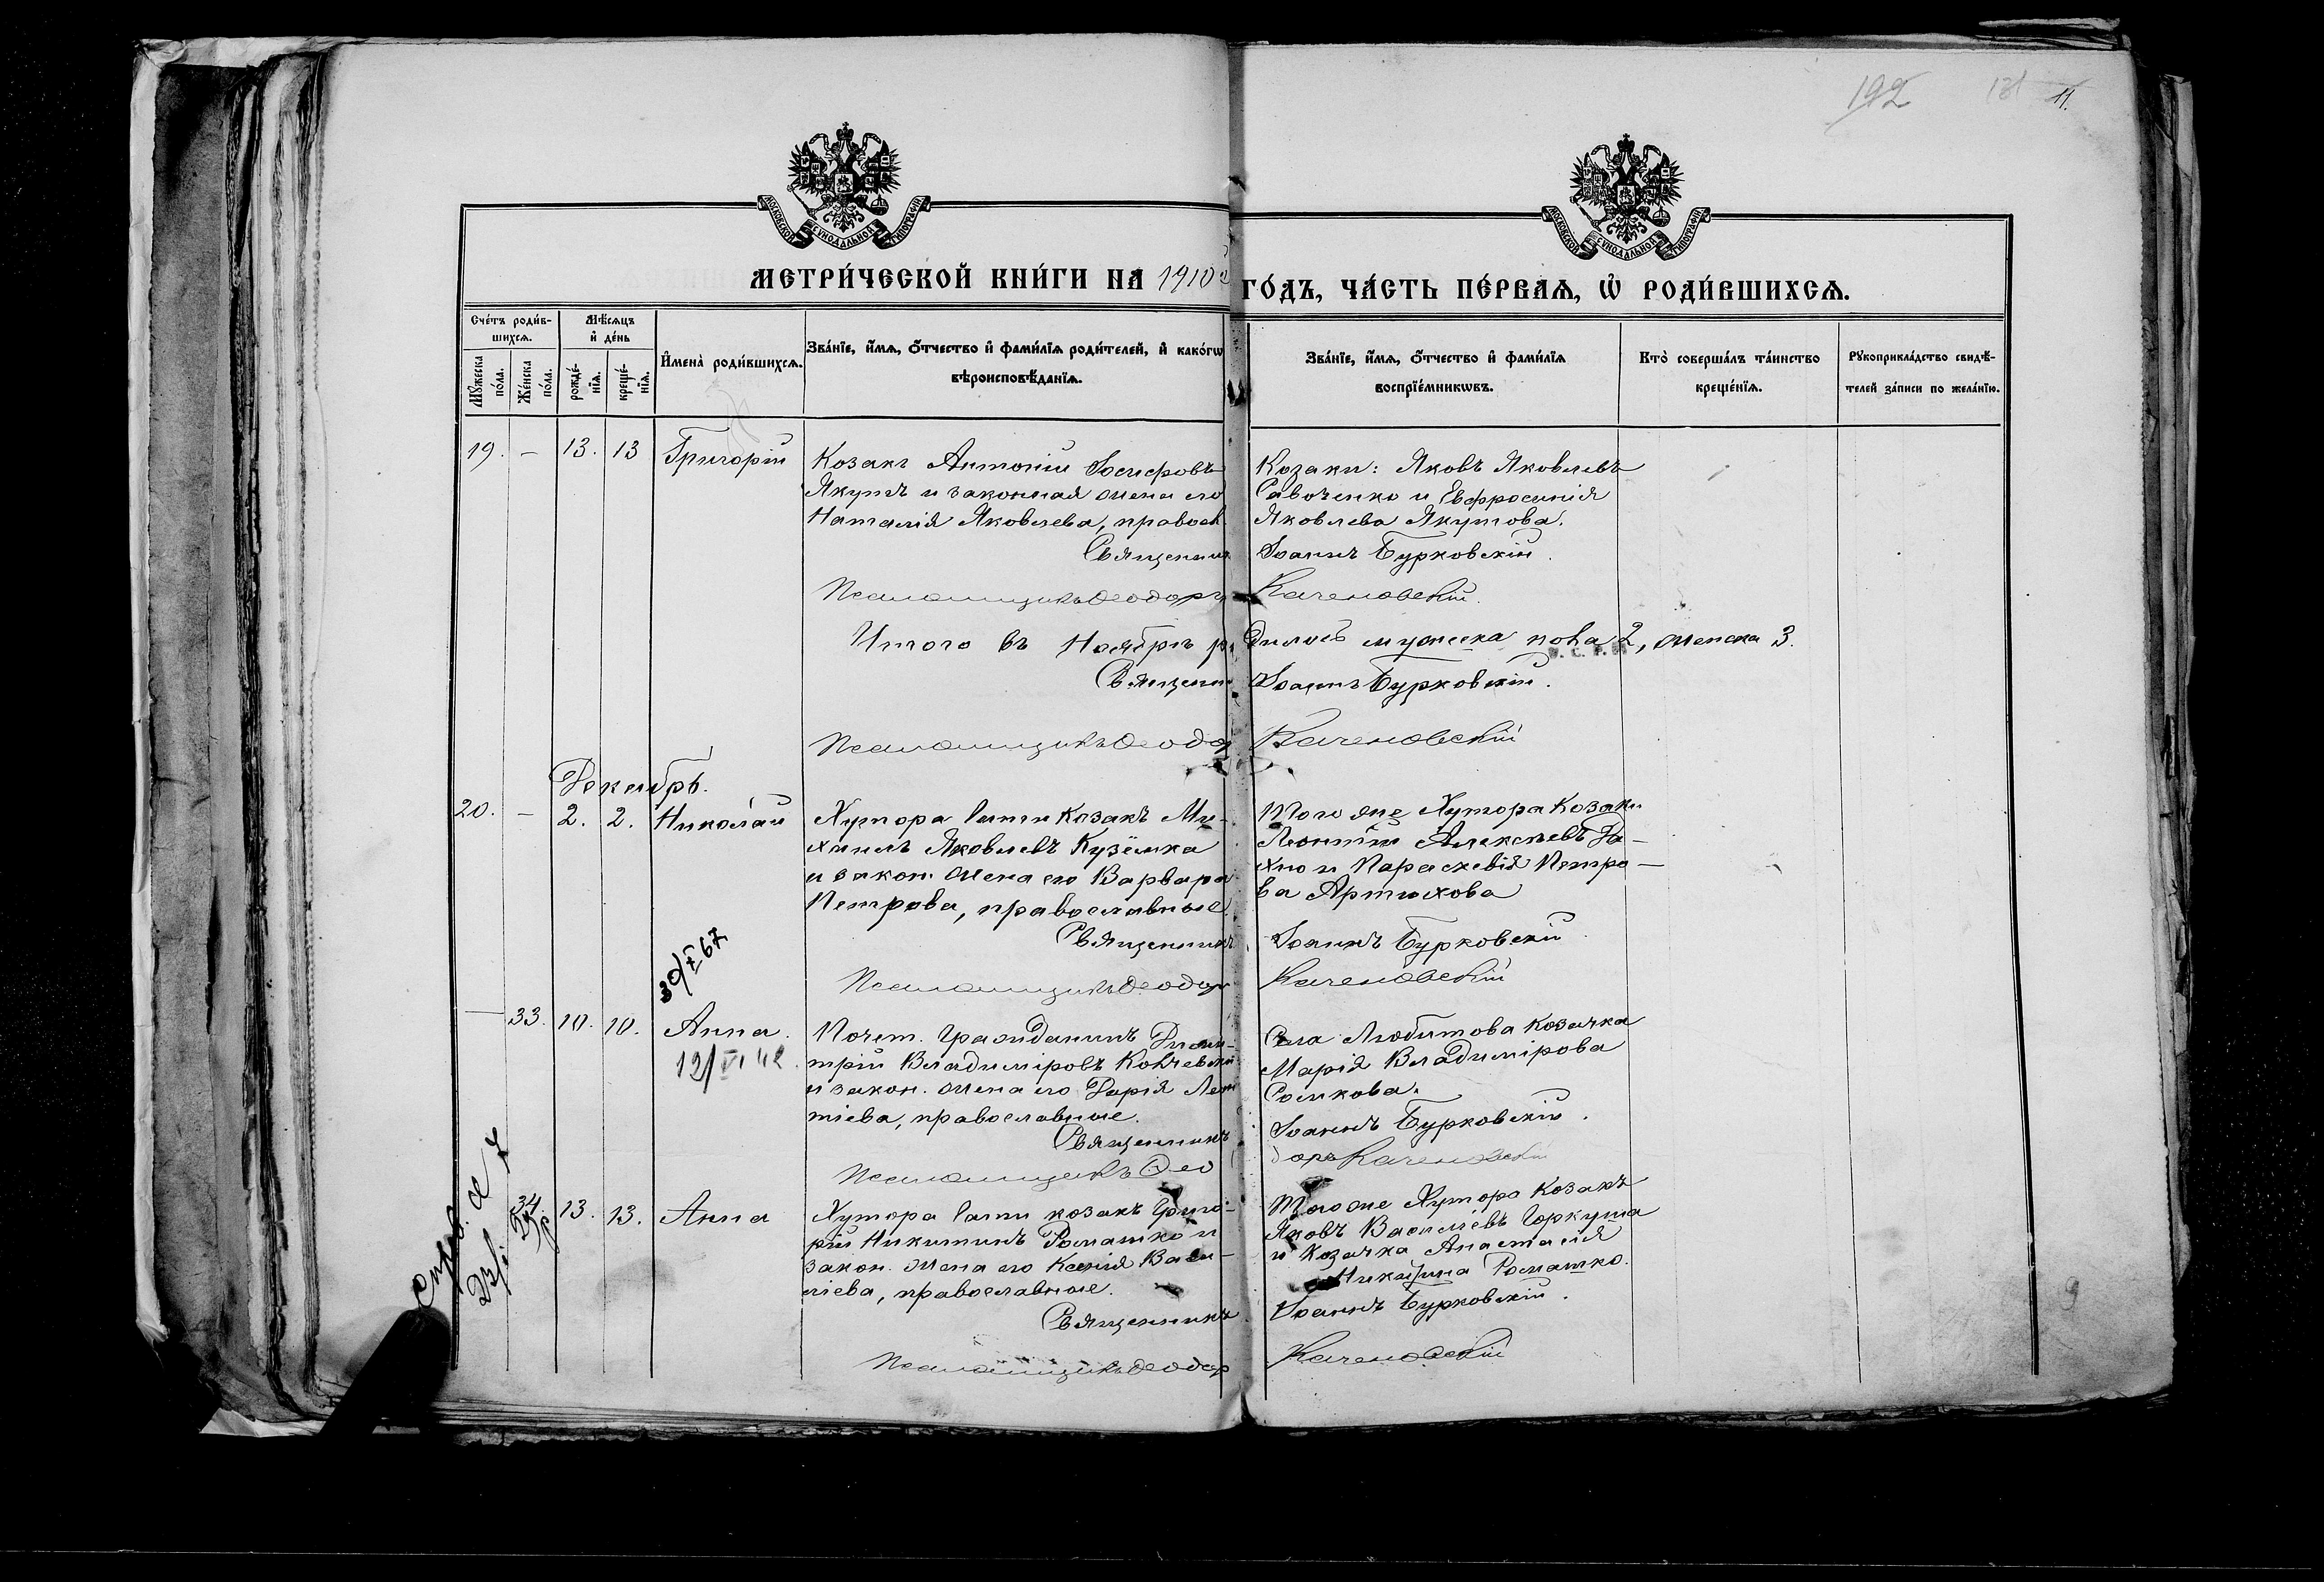 192 131 11.
МОСКОВСКОЙ СѴНОДАЛЬНОЙ ТИПОГРАФІИ
МОСКОВСКОЙ СѴНОДАЛЬНОЙ ТИПОГРАФІИ
МЕТРИ́ЧЕСКОЙ КНИ́ГИ НА 1910 ГО́ДЪ, ЧА́СТЬ ПЕ́РВАѦ, Ѡ҆ РОДИ́ВШИХСѦ.
Сче́тъ роди́в-
шихсѧ.
Мꙋ́жеска по́ла.
Же́нска по́ла.
Мѣ́сѧцъ
и҆ де́нь
рожде́-
нїѧ.
креще́-
нїѧ.
И҆мена̀ роди́вшихсѧ.
Зва́нїе, и҆́мѧ, ѻ҆́тчество и҆ фами́лїѧ роди́телей, и҆ како́гѡ
вѣроисповѣ́данїѧ.
Зва́нїе, и҆́мѧ, ѻ҆́тчество и҆ фами́лїѧ
воспрїе́мникѡвъ.
Кто̀ соверша́лъ та́инство
креще́нїѧ.
Рꙋкоприкла́дство свидѣ́-
телей за́писи по жела́нїю.
19. – 13. 13 Григорій
Козакъ Антоній Іосифовъ
Якутъ и законная жена его
Наталія Яковлева, правосл
Священник
Козаки: Яковъ Яковлевъ
Савоченко и Евфросинія
Яковлева Якутова.
Іоаннъ Бурковскій.
Псаломщикъ Ѳеодоръ Каченовскій.
Итого въ Ноябрѣ родилось мужеска пола 2, женска 3.
Священник Іоаннъ Бурковскій.
Псаломщикъ Ѳеодор Каченовскій
Декабрь.
20. – 2. 2. Николай
Хутора Сати козакъ Ми-
хаилъ Яковлевъ Кузёмка
и закон. жена его Варвара
Петрова, православные.
Священникъ
Того же Хутора козаки
Леонтій Алексѣевъ Да-
хно и Параскевія Петро-
ва Артюхова
Іоаннъ Бурковскій
Псаломщикъ Ѳеодор Каченовскій
30/X 67
– 33. 10. 10. Анна.
12/VI 42
Почет. Гражданинъ Дими-
трій Владиміровъ
и закон. жена его Дарія
тіева, православные.
Священникъ
Села Любитова козачка
Марія Владимірова
Сомкова.
Іоаннъ Бурковскій.
Псаломщикъ Ѳеодоръ Каченовскій
34. 13. 13. Анна
Хутора Сати козакъ Григо-
рій Никитинъ Ромашко и
закон. жена его Ксенія Васи-
лієва, православные.
Священникъ
Того же Хутора козакъ
Яковъ Васильевъ Горкуша
и козачка Анастасія
Никитина Ромашко.
Іоаннъ Бурковскій.
Псаломщикъ Ѳеодор Каченовскій
9